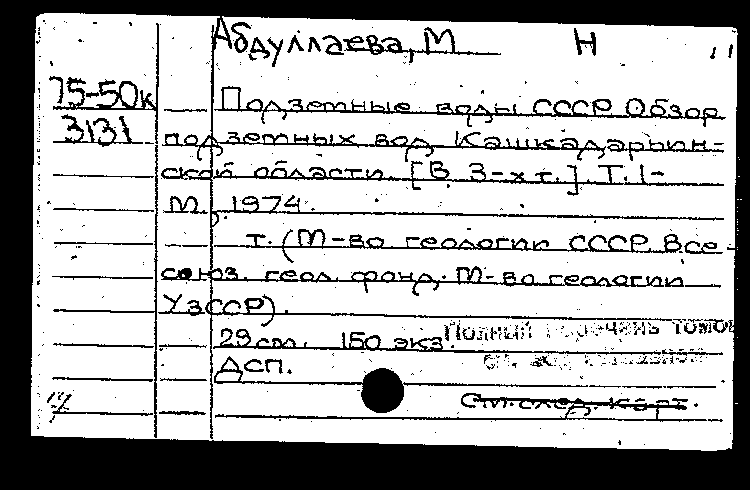 Абдуллаева, М Н
75-50к Подземные воды СССР. Обзор
3131 подземных вод Кашкадарьин-
ской области. [В 3-х т.]. Т. 1-
М., 1974.
т. (М-во геологии СССР. Все-
союз. геол. фонд. М-во геологии
УзССР).
29 см. 150 экз.
Полный перечень томов
ДСП.
См. след. карт.